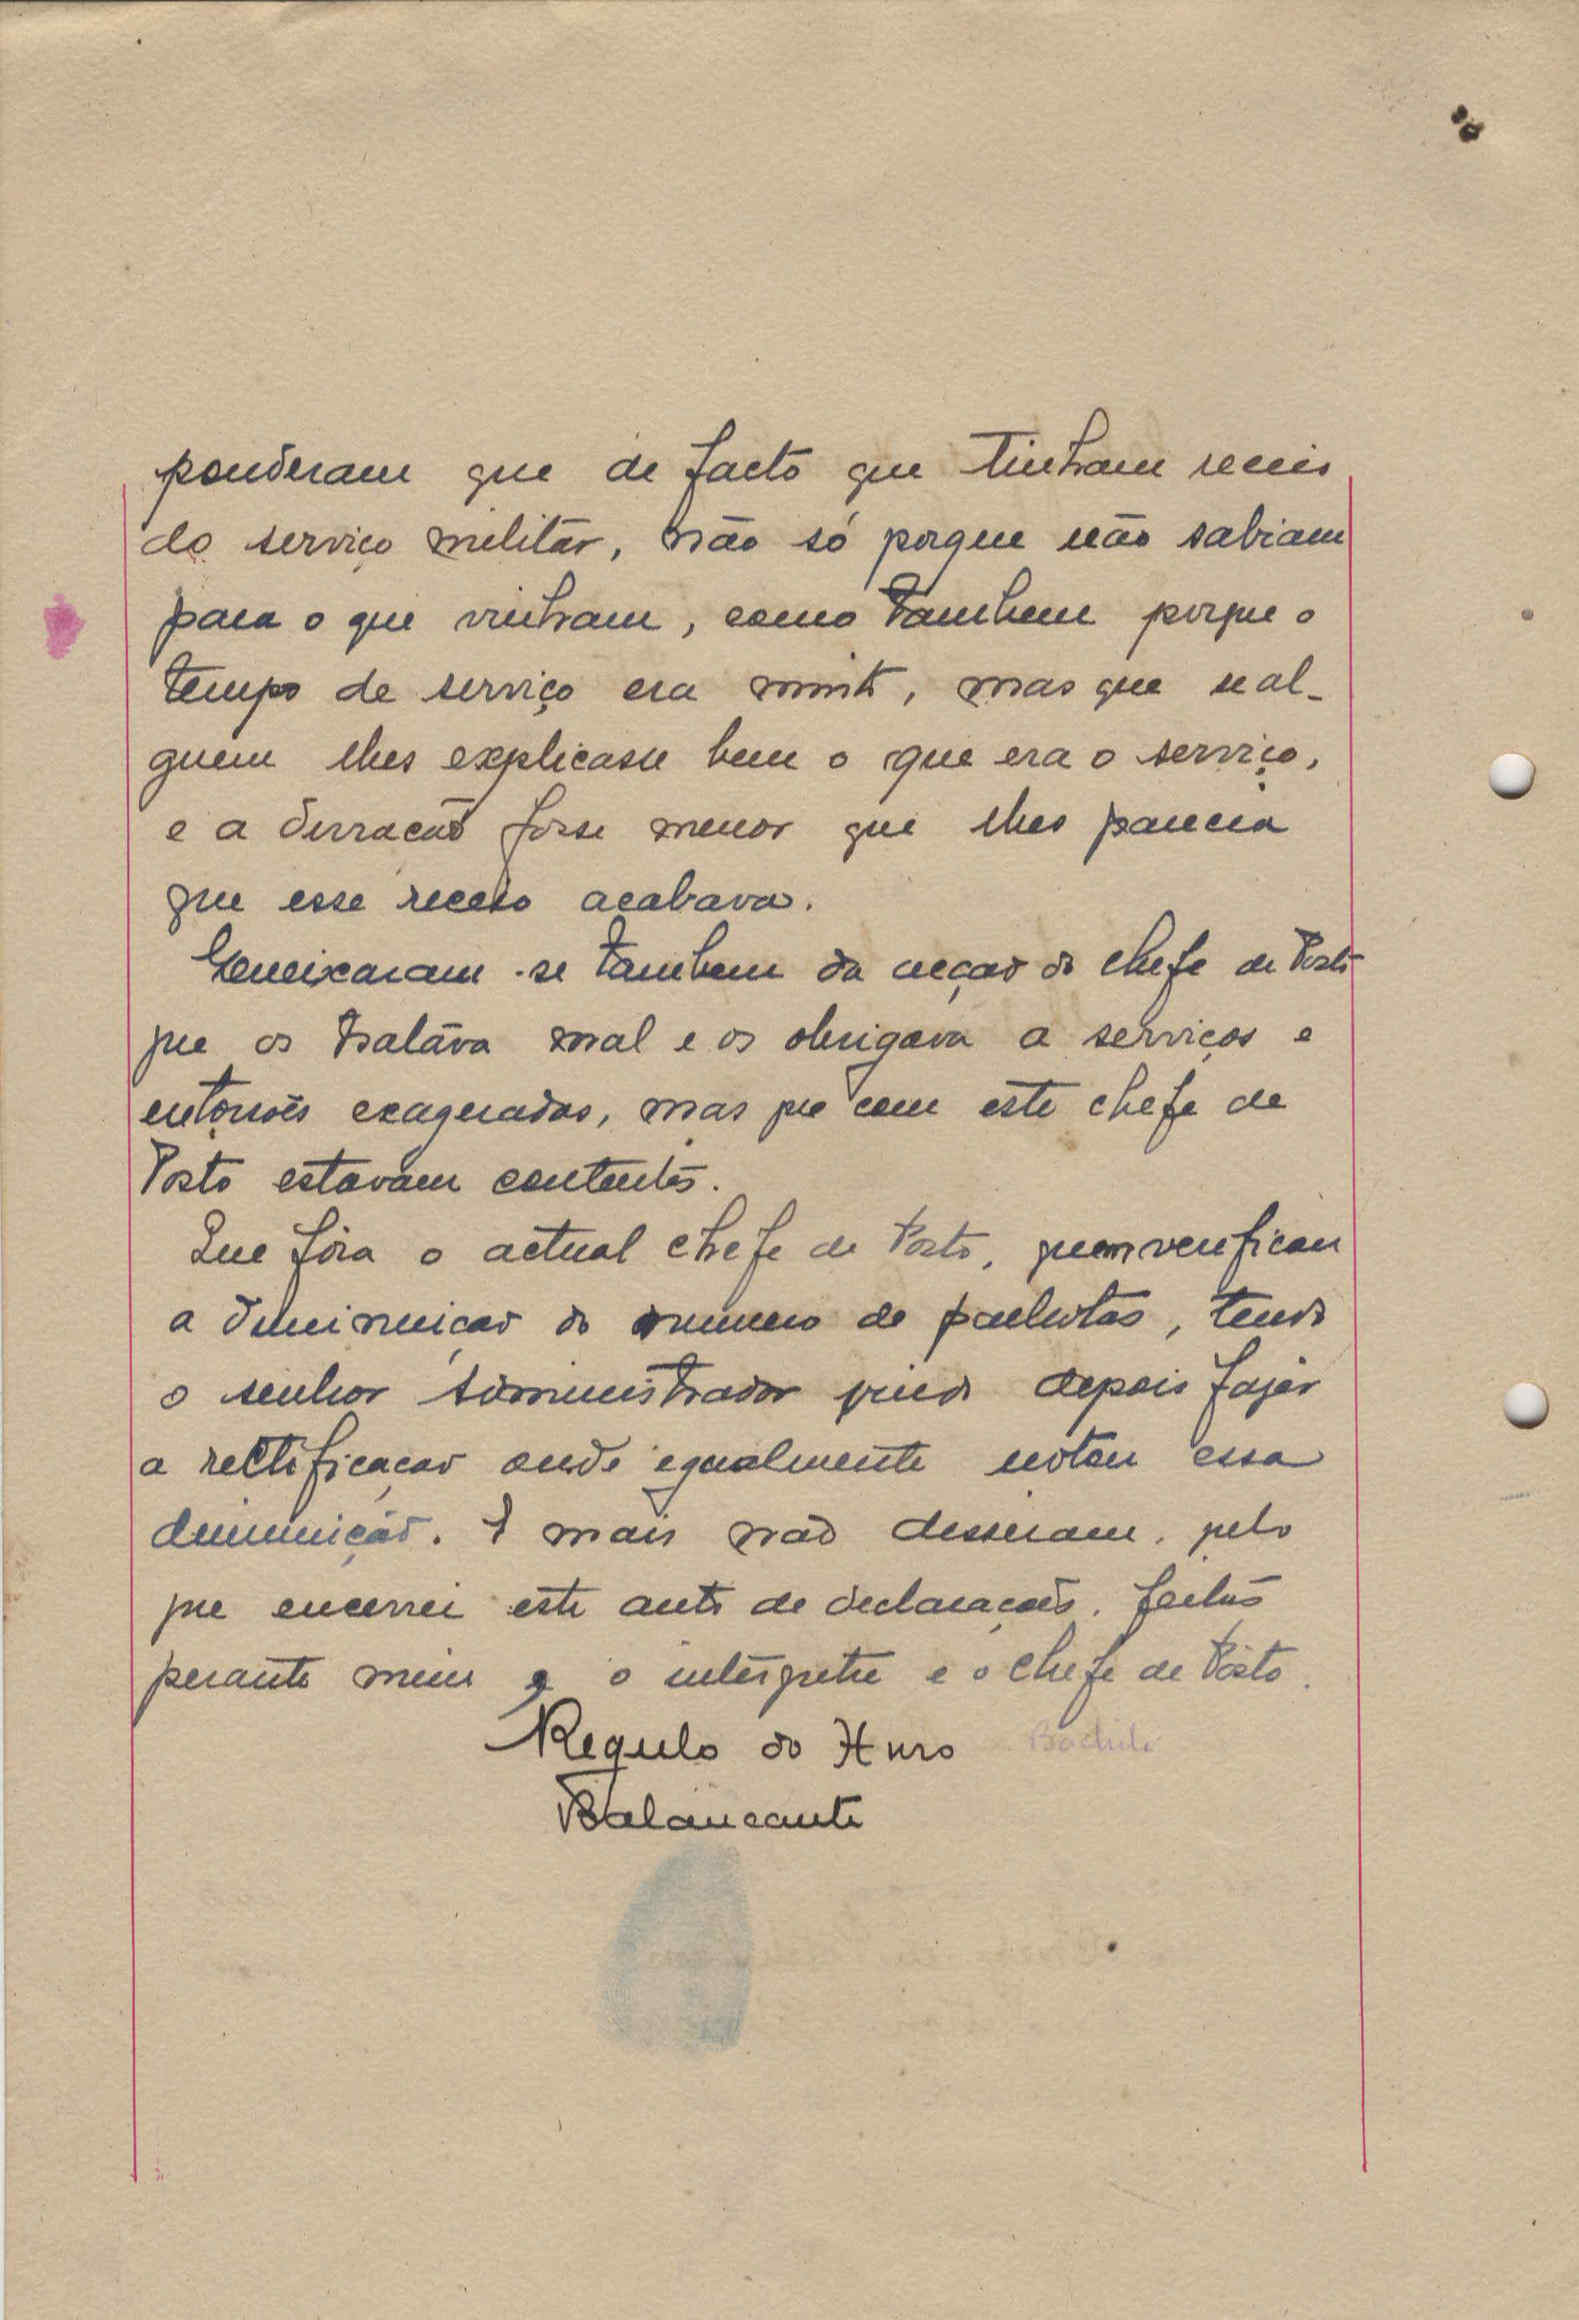 ponderam que de facto que tinham receio
do serviço militár, não só porque não sabiam
para o que vinham, como tambem porque o
tempo de serviço era muito, mas que se al-
guem lhes explicasse bem o que era o serviço,
e a durracão fosse menor que lhes parecia
que esse receio acabava.
Queixaram-se tambem da acção do chefe de Posto
que os tratáva mal e os obrigava a serviços e
extorsões exageradas, mas que com este chefe de
Posto estavam contentes.
Que fôra o actual chefe de Posto, quem verificou
a diminuição do numero de palhotas, tendo
o senhor Administrador vindo depois fazer
a rectificação onde egualmente notou essa
diminuição. E mais não disseram, pelo
que encerrei este auto de declarações, feitas
perante mim e o intérpetre e o chefe de Posto.
Regulo do
Balancante